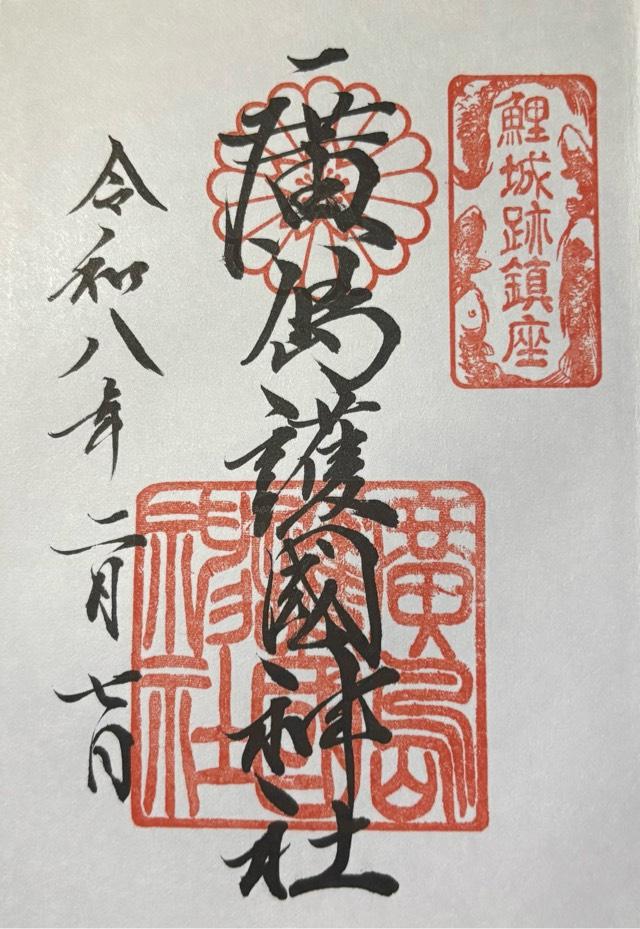 鯉城跡鎮座
廣島護國神社
廣島
護國
神社
令和八年二月七日